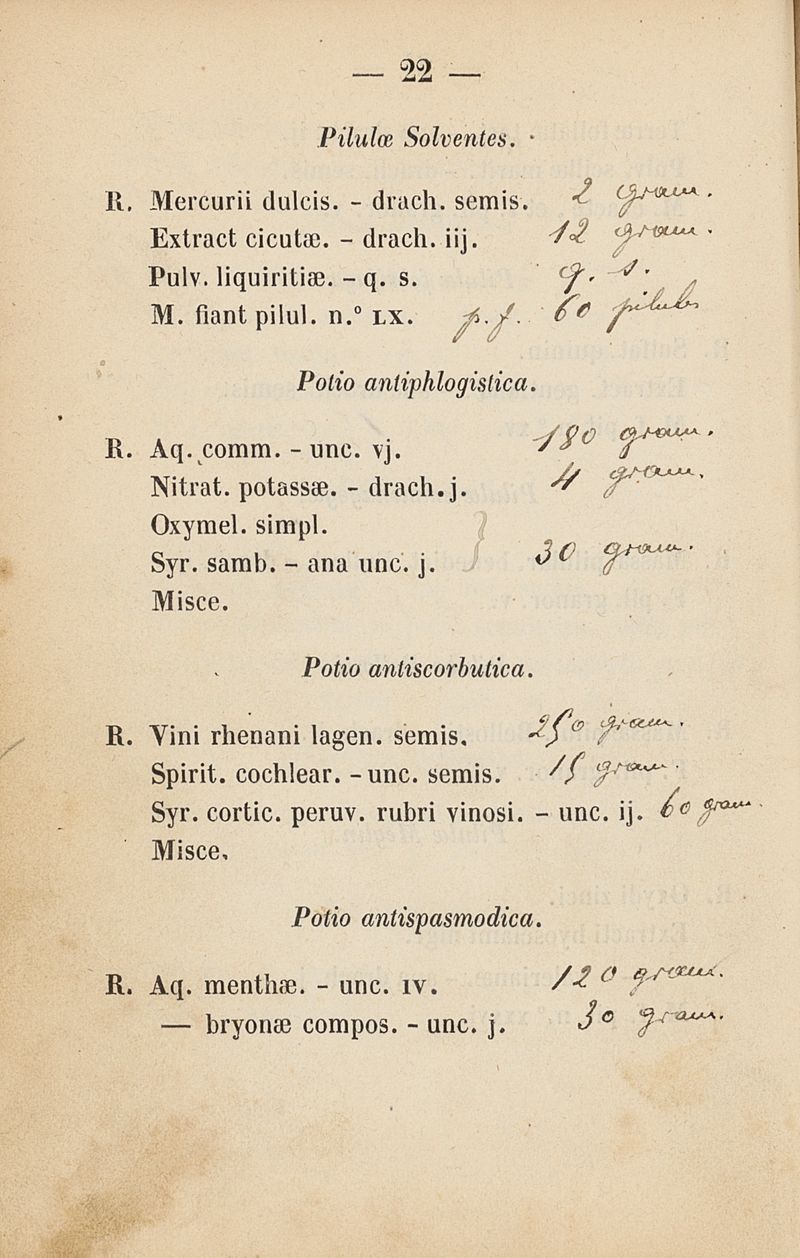 — 22 —
Pilulæ Solventes.
R. Mercurii dulcis. - drach. semis. 2 gram.
Extract cicutæ. - drach. iij. 12 gram.
Pulv. liquiritiæ. - q. s. q. s.
M. fiant pilul. n.º LX. p. f. 60 pilul
Potio antiphlogistica.
R. Aq. comm. - unc. vj. 180 gram.
Nitrat. potassæ. - drach. j. 4 gram.
Oxymel. simpl.
Syr. samb. - ana unc. j. 30 gram.
Misce.
Potio antiscorbutica.
R. Vini rhenani lagen. semis. 250 gram.
Spirit. cochlear. - unc. semis. 15 gram.
Syr. cortic. peruv. rubri vinosi. - unc. ij. 60 gram.
Misce.
Potio antispasmodica.
R. Aq. menthæ. - unc. IV. 120 gram.
— bryonæ compos. - unc. j. 30 gram.